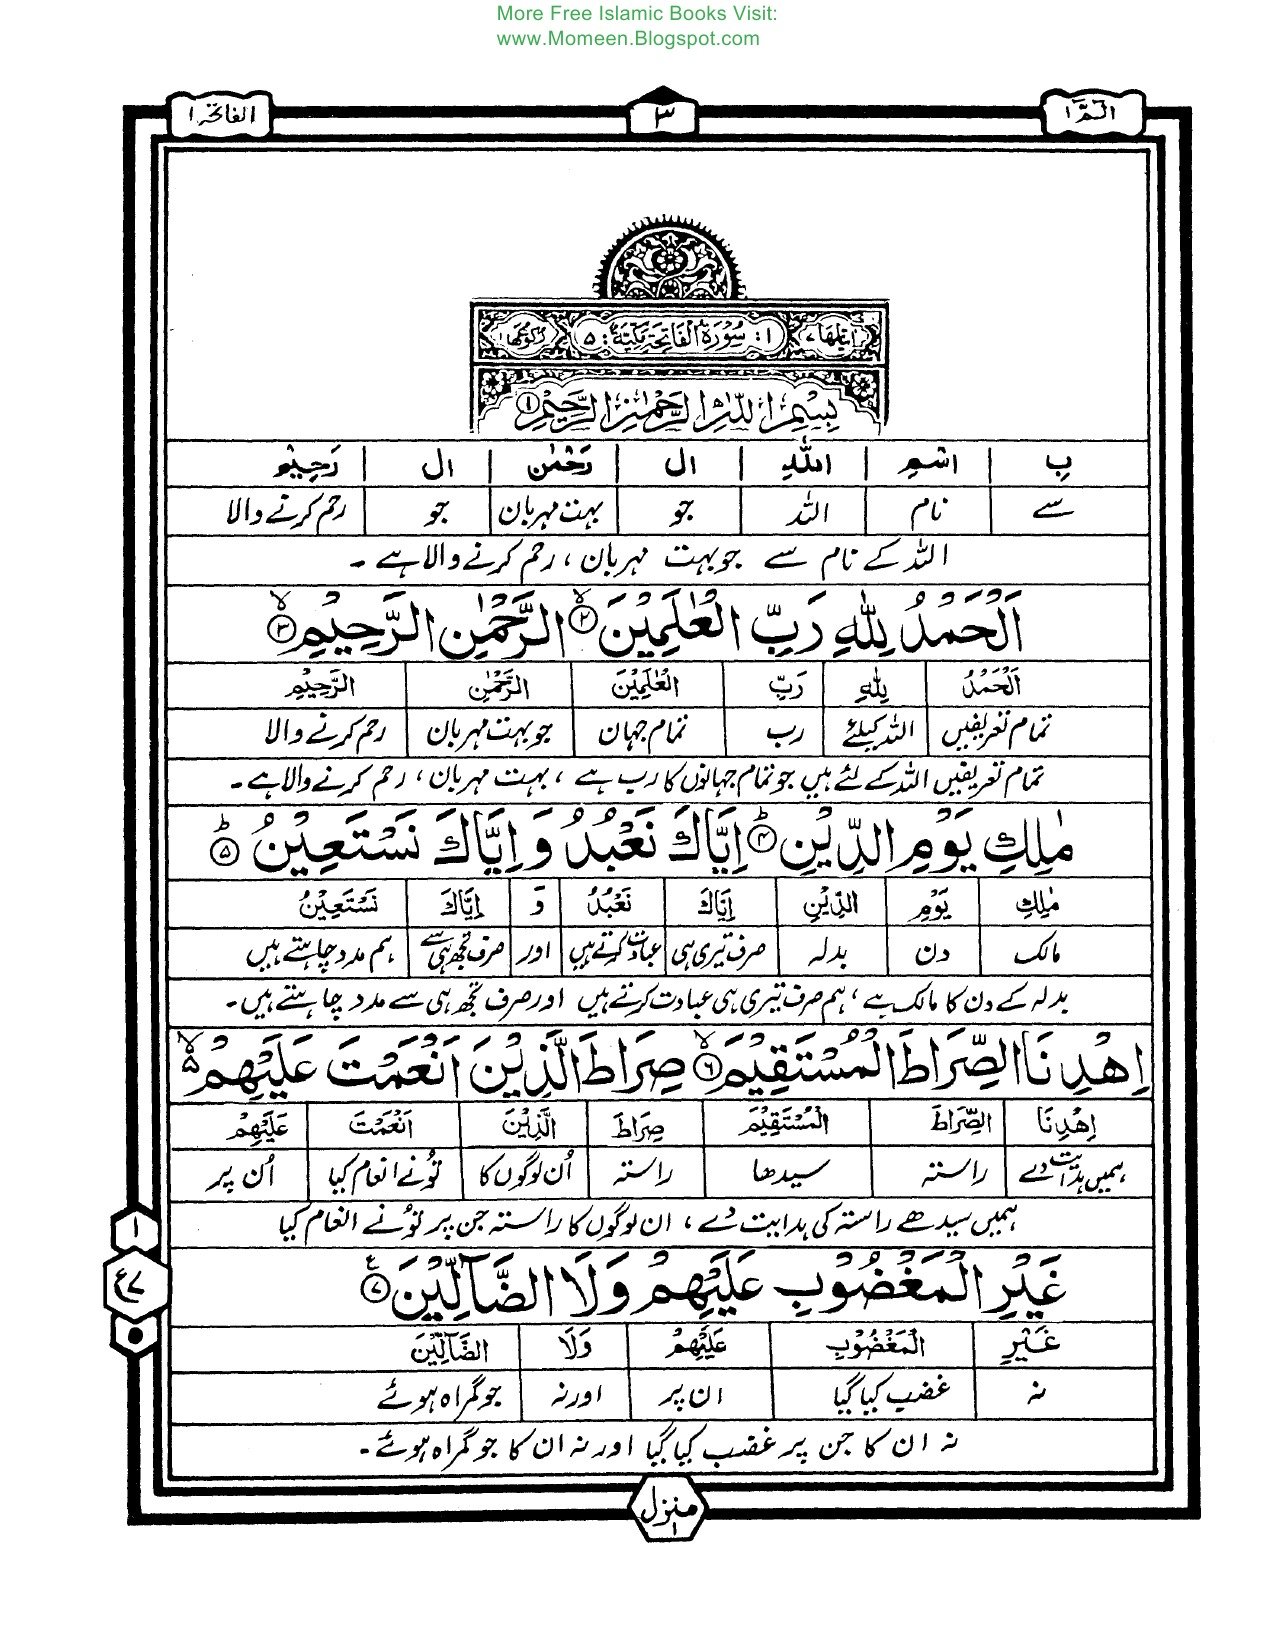 More Free Islamic Books Visit:
www.Momeen.Blogspot.com
الٓمّٓ ۱
۳
الفاتحۃ ۱
اٰیٰتُہَا ۷
۱: سُوْرَۃُ الْفَاتِحَۃِ مَکِّیَّۃٌ: ۵
رُکُوْعُہَا ۱
بِسْمِ اللّٰہِ الرَّحْمٰنِ الرَّحِیْمِ ۱
بِ | اسْمِ | اللّٰہِ | ال | رَحْمٰنِ | ال | رَحِیْمِ
سے | نام | اللہ | جو | بہت مہربان | جو | رحم کرنے والا
اللہ کے نام سے جو بہت مہربان ، رحم کرنے والا ہے ۔
اَلْحَمْدُ لِلّٰہِ رَبِّ الْعٰلَمِیْنَ ۙ۲ الرَّحْمٰنِ الرَّحِیْمِ ۙ۳
اَلْحَمْدُ | لِلّٰہِ | رَبِّ | الْعٰلَمِیْنَ | الرَّحْمٰنِ | الرَّحِیْمِ
تمام تعریفیں | اللہ کیلئے | رب | تمام جہان | جو بہت مہربان | رحم کرنے والا
تمام تعریفیں اللہ کے لئے ہیں جو تمام جہانوں کا رب ہے ، بہت مہربان ، رحم کرنے والا ہے ۔
مٰلِکِ یَوْمِ الدِّیْنِ ؕ۴ اِیَّاکَ نَعْبُدُ وَ اِیَّاکَ نَسْتَعِیْنُ ؕ۵
مٰلِکِ | یَوْمِ | الدِّیْنِ | اِیَّاکَ | نَعْبُدُ | وَ | اِیَّاکَ | نَسْتَعِیْنُ
مالک | دن | بدلہ | صرف تیری ہی | عبادت کرتے ہیں | اور | صرف تجھ ہی سے | ہم مدد چاہتے ہیں
بدلہ کے دن کا مالک ہے ، ہم صرف تیری ہی عبادت کرتے ہیں اور صرف تجھ ہی سے مدد چاہتے ہیں ۔
اِھْدِنَا الصِّرَاطَ الْمُسْتَقِیْمَ ۙ۶ صِرَاطَ الَّذِیْنَ اَنْعَمْتَ عَلَیْہِمْ ۙ۵
اِھْدِنَا | الصِّرَاطَ | الْمُسْتَقِیْمَ | صِرَاطَ | الَّذِیْنَ | اَنْعَمْتَ | عَلَیْہِمْ
ہمیں ہدایت دے | راستہ | سیدھا | راستہ | اُن لوگوں کا | تُو نے انعام کیا | اُن پر
ہمیں سیدھے راستہ کی ہدایت دے ، ان لوگوں کا راستہ جن پر تُو نے انعام کیا
غَیْرِ الْمَغْضُوْبِ عَلَیْہِمْ وَلَا الضَّآلِّیْنَ ۷
غَیْرِ | الْمَغْضُوْبِ | عَلَیْہِمْ | وَلَا | الضَّآلِّیْنَ
نہ | غضب کیا گیا | ان پر | اور نہ | جو گمراہ ہوئے
نہ ان کا جن پر غضب کیا گیا اور نہ ان کا جو گمراہ ہوئے ۔
۱
ع۷
منزل ۱